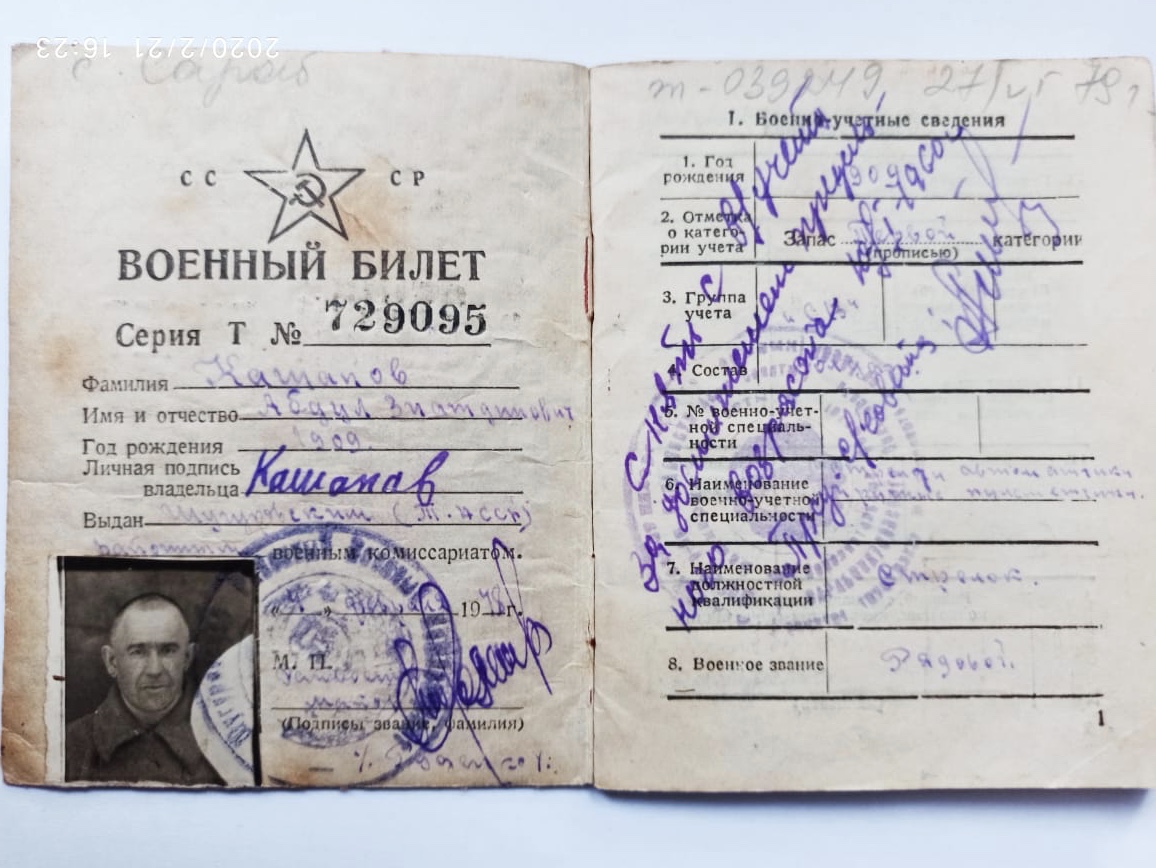 2020/2/21 16:23
с. Сарай
СС СР
ВОЕННЫЙ БИЛЕТ
Серия Т № 729095
Фамилия Кашапов
Имя и отчество Абдул Зиатдинович
Год рождения 1909
Личная подпись
владельца Кашапав
Выдан Шугуровским (Т.АССР)
районным военным комиссариатом.
19 48 г.
М. П.
(Подпись, звание, фамилия)
27/VI 79 г
1. Военно-учетные сведения
1. Год
рождения
1909
2. Отметка
о катего-
рии учета
Запас Первой категории
(прописью)
3. Группа
учета
4. Состав
5. № военно-учет-
ной специаль-
ности
6. Наименование
военно-учетной
специальности
7. Наименование
должностной
квалификации
Стрелок.
8. Военное звание
Рядовой.
1
Снять с в/учета
за достижением предель
ного возраста